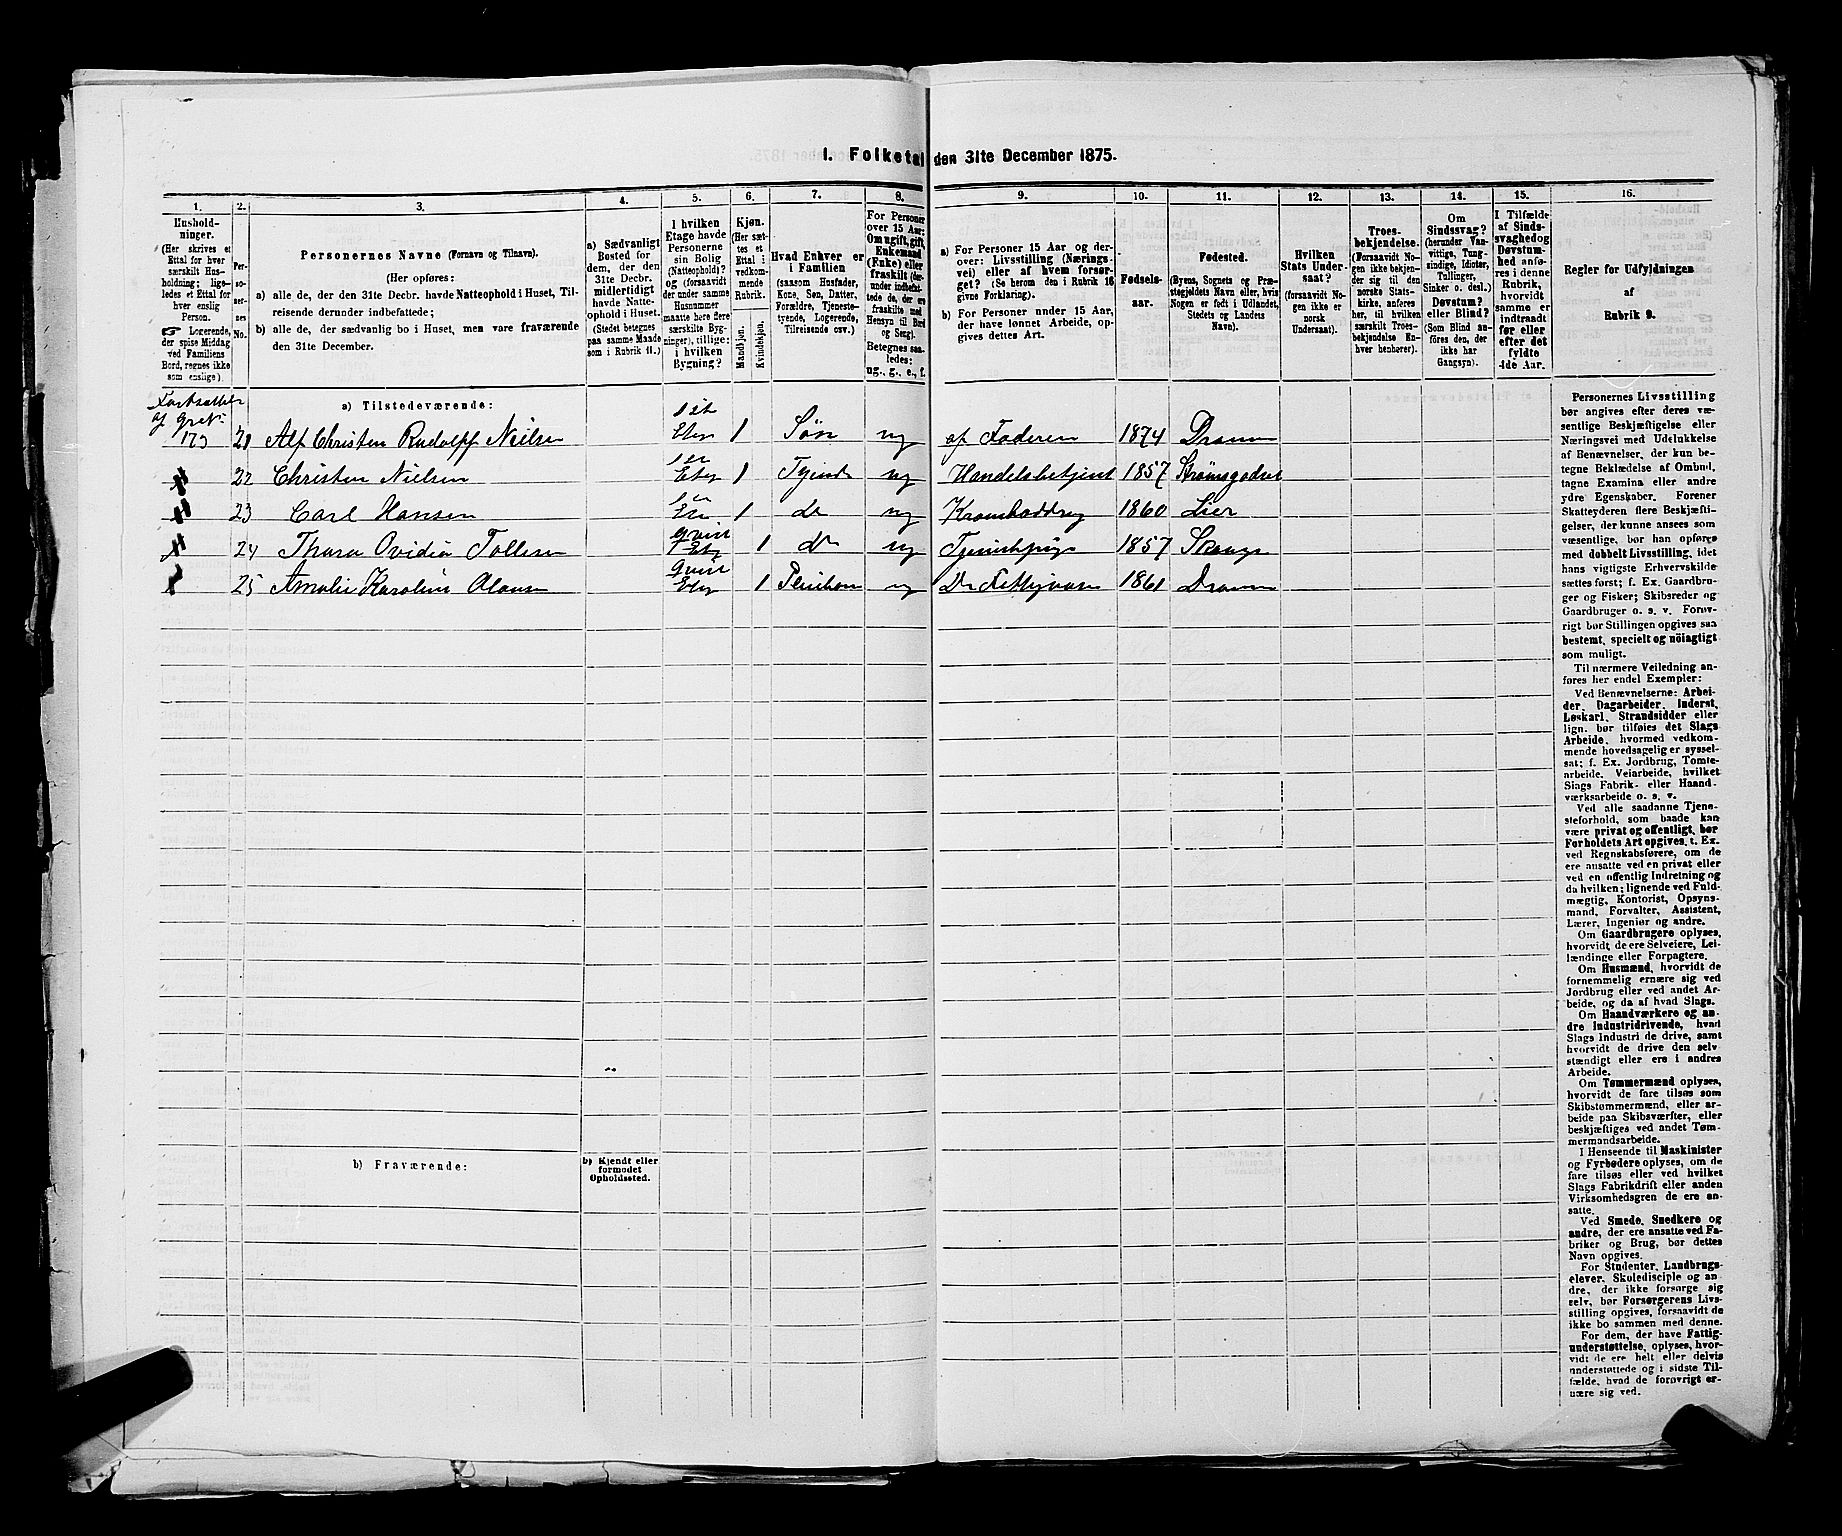 1. Folketal den 31te December 1875.
1.
2.
3.
4.
5.
6.
7.
8.
9.
10.
11.
12.
13.
14.
15.
16.
Hushold-
ninger.
(Her skrives et
Ettal for hver
særskilt Hus-
holdning; lige-
ledes et Ettal for
hver enslig
Person.
☞ Logerende,
der spise Middag
ved Familiens
Bord, regnes ikke
som enslige).
Per-
so-
ner-
nes
No.
Personernes Navne (Fornavn og Tilnavn).
(Her opføres:
a) alle de, der den 31te Decbr. havde Natteophold i Huset, Til-
reisende derunder indbefattede;
b) alle de, der sædvanlig bo i Huset, men vare fraværende
den 31te December.
a) Sædvanligt
Bosted for
dem, der den
31te Decbr.
midlertidigt
havde Natte-
ophold i Huset.
(Stedet betegnes
paa samme Maade
som i Rubrik 11.)
I hvilken
Etage havde
Personerne
sin Bolig
(Natteophold)?
og (forsaavidt
der under samme
Husnummer
maatte høre flere
særskilte Byg-
ninger), tillige:
i hvilken
Bygning?
Kjøn.
(Her sæt-
tes et
Ettal i
vedkom-
mende
Rubrik.
Mandkjøn.
Kvindekjøn.
Hvad Enhver er
i Familien
(saasom Husfader,
Kone, Søn, Datter,
Forældre, Tjeneste-
tyende, Logerende,
Tilreisende osv.)
For Personer
over 15 Aar:
Om ugift, gift,
Enkemand
(Enke) eller
fraskilt (der-
under indbefat-
tede de, der ere
fraskilte med
Hensyn til Bord
og Seng).
Betegnes saa-
ledes:
ug., g., e., f.
a) For Personer 15 Aar og der-
over: Livsstilling (Nærings-
vei) eller af hvem forsør-
get? (Se herom den i Rubrik 16
givne Forklaring).
b) For Personer under 15 Aar,
der have lønnet Arbeide, op-
gives dettes Art.
Fødsels-
aar.
Fødested.
(Byens, Sognets og Præ-
stegjeldets Navn eller, hvis
Nogen er født i Udlandet,
Stedets og Landets
Navn).
Hvilken
Stats Under-
saat?
(forsaavidt No-
gen ikke er
norsk
Undersaat).
Troes-
bekjendelse.
(Forsaavidt No-
gen ikke bekjen-
der sig til den
norske Stats-
kirke, anføres
her, til hvilken
særskilt Troes-
bekjendelse En-
hver henhører).
Om
Sindssvag?
(herunder Van-
vittige, Tung-
sindige, Idioter,
Tullinger,
Sinker o. desl.)
Døvstum?
eller Blind?
(Som Blind an-
føres den, der
ikke har
Gangsyn).
I Tilfælde
af Sinds-
svaghed og
Døvstum-
hed anfø-
res i denne
Rubrik,
hvorvidt
samme er
indtraadt
før eller
efter det
fyldte
4de Aar.
Regler for Udfyldningen
af
Rubrik 9.
a) Tilstedeværende:
173 21 Alf Christen Rudolf Nielsen 1 Søn ug af Faderen 1874 Dramm
22 Christen Nielsen 1 Tyende ug Handelsbetjent 1857 Strømsgodset
23 Carl Hansen 1 do ug 1860 Lier
24 Thora Ovidia Tollesen Qvist 1 do ug 1857
25 Amalie Karoline Olausen Qvist 1 ug 1861 Dramm
b) Fraværende:
b) Kjendt eller
formodet
Opholdssted.
Personernes Livsstilling
bør angives efter deres væ-
sentlige Beskjæftigelse eller
Næringsvei med Udelukkelse
af Benævnelser, der kun be-
tegne Beklædelse af Ombud,
tagne Examina eller andre
ydre Egenskaber. Forener
Skatteyderen flere Beskjæfti-
gelser, der kunne ansees som
væsentlige, bør han opføres
med dobbelt Livsstilling, idet
hans vigtigste Erhvervskilde
sættes først; f. Ex. Gaardbru-
ger og Fisker; Skibsreder og
Gaardbruger o. s. v. Forøv-
rigt bør Stillingen opgives saa
bestemt, specielt og nöiagtigt
som muligt.
Til nærmere Veiledning an-
føres her endel Exempler:
Ved Benævnelserne: Arbei-
der, Dagarbeider, Inderst,
Løskarl, Strandsidder eller
lign. bør tilføies det Slags
Arbeide, hvormed vedkom-
mende hovedsagelig er syssel-
sat; f. Ex. Jordbrug, Tomte-
arbeide, Veiarbeide, hvilket
Slags Fabrik- eller Haand-
værksarbeide o. s. v.
Ved alle saadanne Tjene-
steforhold, som baade kan
være privat og offentligt, bør
Forholdets Art opgives, t. Ex.
ved Regnskabsførere, om de
ere ansatte ved en privat eller
ved en offentlig Indretning og
da hvilken; lignende ved Fuld-
mægtig, Kontorist, Opsyns-
mand, Forvalter, Assistent,
Lærer, Ingeniør og andre.
Om Gaardbrugere oplyses,
hvorvidt de ere Selveiere, Lei-
lændinge eller Forpagtere.
Om Husmænd, hvorvidt de
fornemmelig ernære sig ved
Jordbrug eller ved andet Ar-
beide, og da af hvad Slags.
Om Haandværkere og an-
dre Industridrivende, hvad
Slags Industri de drive, samt
hvorvidt de drive den selv-
stændigt eller ere i andres
Arbeide.
Om Tømmermænd oplyses,
hvorvidt de fare tilsøs som
Skibstømmermænd, eller ar-
beide paa Skibsværfter, eller
beskjæftiges ved andet Tøm-
mermandsarbeide.
I Henseende til Maskinister
og Fyrbødere oplyses, om de
fare tilsøs eller ved hvilket
Slags Fabrikdrift eller anden
Virksomhedsgren de ere an-
satte.
Ved Smede, Snedkere og
andre, der ere ansatte ved Fa-
briker og Brug, bør dettes
Navn opgives.
For Studenter, Landbrugs-
elever, Skoledisciple og an-
dre, der ikke forsørge sig
selv, bør Forsørgerens Livs-
stilling opgives, forsaavidt de
ikke bo sammen med denne.
For dem, der have Fattig-
understøttelse, oplyses, hvor-
vidt de ere helt eller delvis
understøttede og i sidste Til-
fælde, hvad de forøvrigt er-
nære sig ved.